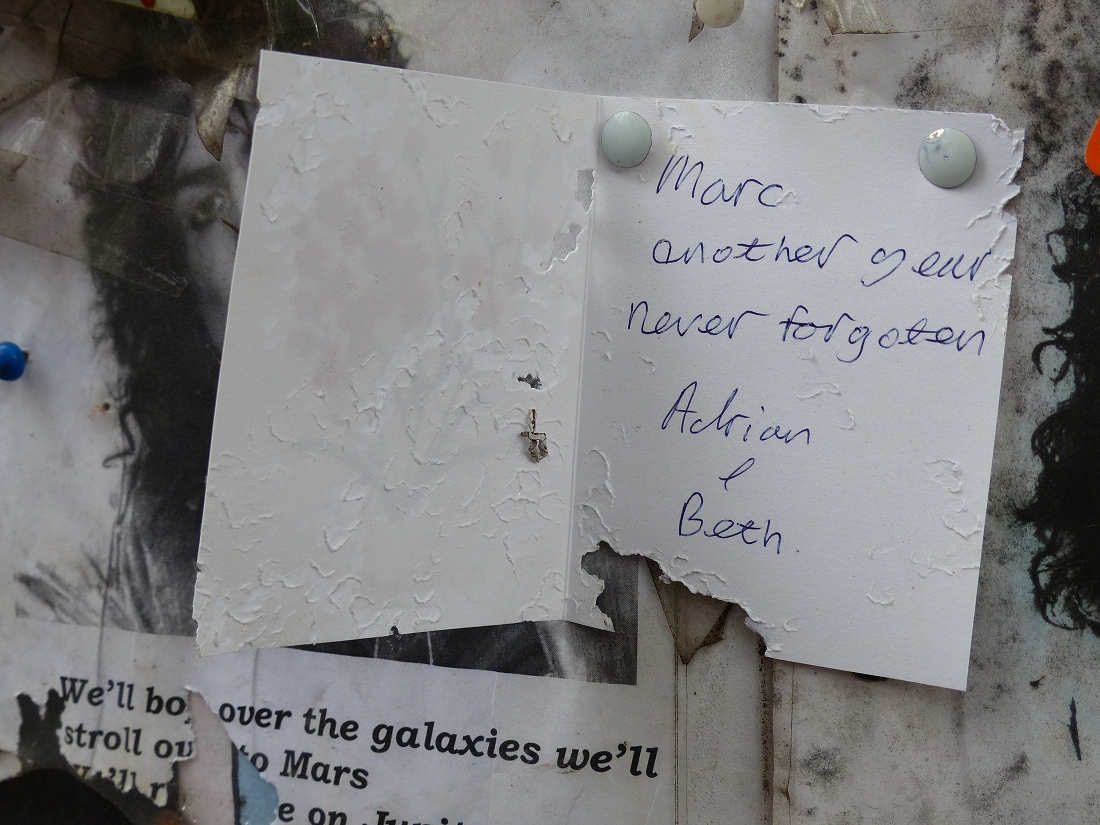 Marc
another year
never forgoten
Adrian
&
Beth.
We'll bop over the galaxies we'll
stroll ou to Mars
We'll r
e on Jupit